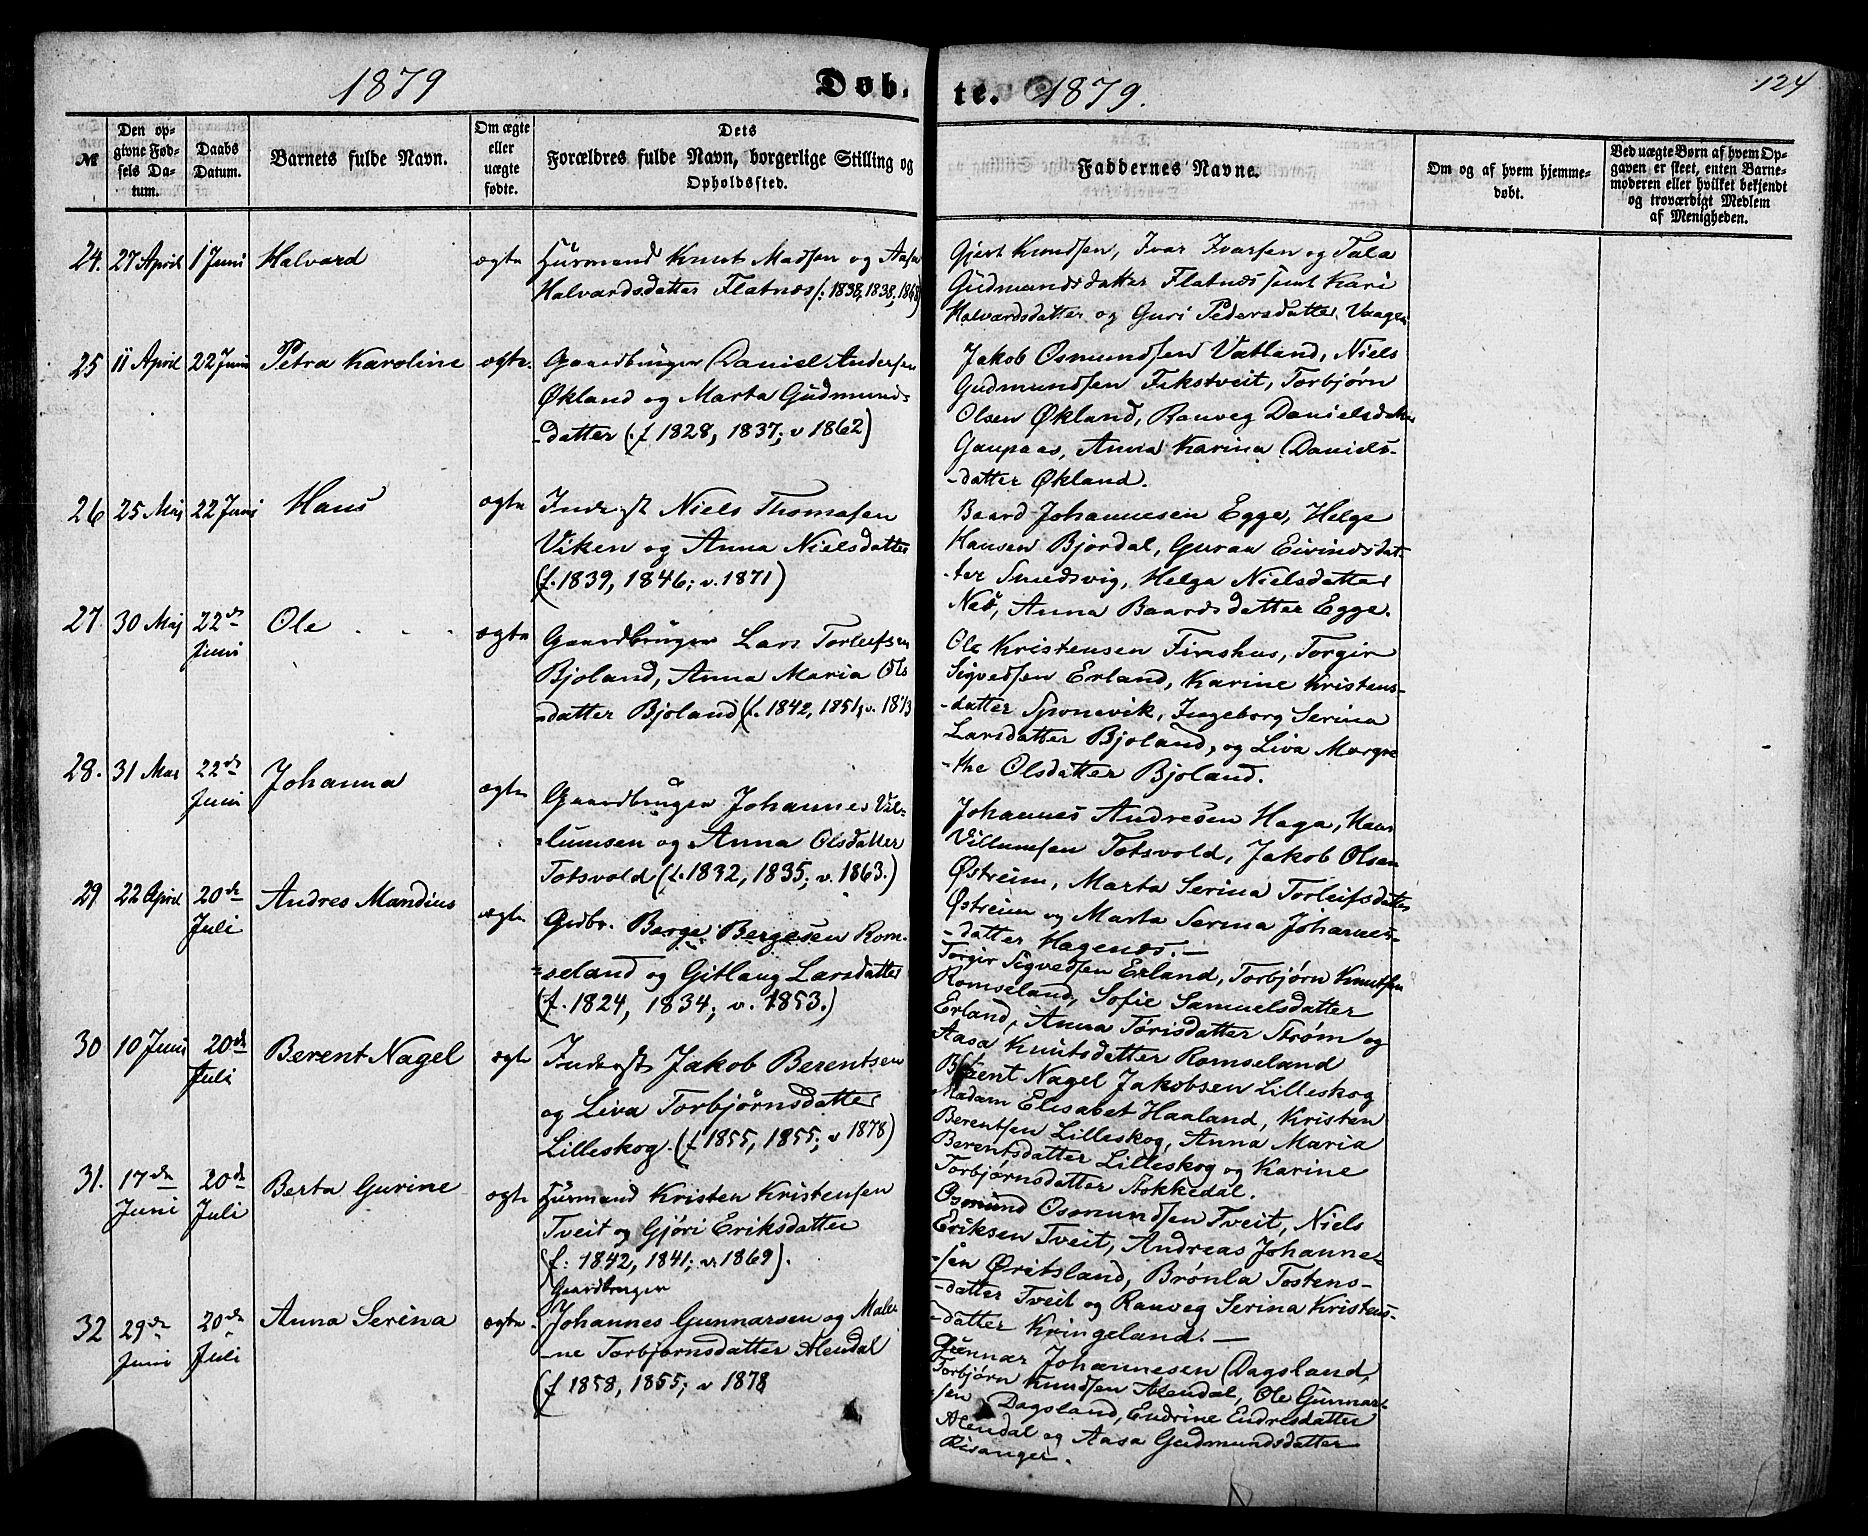 1879
Døb.
te.
1879.
124
№
Den op-
givne Fød-
sels Da-
tum.
Daabs
Datum.
Barnets fulde Navn.
Om ægte
eller
uægte
fødte.
Dets
Forældres fulde Navn, borgerlige Stilling og
Opholdssted.
Faddernes Navne.
Om og af hvem hjemme-
døbt.
Ved uægte Børn af hvem Op-
gaven er skeet, enten Barne-
moderen eller hvilket bekjendt
og troværdigt Medlem
af Menigheden.
24. 27 April 1 Juni Halvard ægte
Husmand Knut Madsen og Aasa
Halvardsdatter Flatnæs (: 1838, 1838, 1868)
Gjert Knudsen, Ivar Ivarsen og Tala
Gudmundsdatter Flatnæs samt Kari
Halvardsdatter og Guri Pedersdatter Vaagen
25 11 April 22 Juni Petra Karoline ægte.
Gaardbruger Daniel Andersen
Økland og Marta Gudmunds-
-datter (f 1828, 1837; v 1862)
Jakob Osmundsen Vatland, Niels
Gudmundsen Fikstveit, Torbjørn
Olsen Økland, Ranveg Danielsdatter
Gaupaas, Anna Karina Daniels-
-datter Økland.
26 25 Maj 22 Juni Hans ægte
Inderst Niels Thomasen
Viken og Anna Nielsdatter
(f. 1839, 1846; v. 1871)
Baard Johannesen Egge, Helge
Hansen Bjordal, Guraa Eivindsdat-
-ter Smedsvig, Helga Nielsdatter
Nes, Anna Baardsdatter Egge.
27. 30 Maj 22de Juni Ole ægte
Gaardbruger Lars Torleifsen
Bjoland, Anna Maria Ols
-datter Bjoland (f. 1842, 1851, v. 1873
Ole Kristensen Finshus, Torgir
Sigvedsen Erland, Karine Kristens-
-datter Sponevik, Ingeborg Serina
Larsdatter Bjoland, og Liva Margre
-the Olsdatter Bjoland.
28. 31 Mai 22de Juni Johanna ægte
Gaardbruger Johannes Vil-
-lumsen og Anna Olsdatter
Totsvold (f. 1832, 1835; v. 1863.)
Johannes Andresen Haga, Hans
Villumsen Totsvold, Jakob Olsen
Østreim, Marta Serina Torleifsdatter
Østreim og Marta Serina Johannes-
-datter Hagenes. —
29 22 April 20de Juli Andres Mandius ægte
Gdbr. Børge Bergesen Rom-
-seland og Gitlaug Larsdatter
(f. 1824, 1834; v. 1853.)
Torgir Sigvedsen Erland, Torbjørn Knutsen
Romseland, Sofie Samuelsdatter
Erland, Anna Tørisdatter Strøm og
Aasa Knutsdatter Romseland
30 10 Juni 20de Juli Berent Nagel ægte
Inderst Jakob Berentsen
og Liva Torbjörnsdatter
Lilleskog. (f 1855, 1855; v 1878)
Berent Nagel Jakobsen Lilleskog
Madam Elisabet Haaland, Kristen
Berentsen Lilleskog, Anna Maria
Berentsdatter Lilleskog og Karine
Torbjørnsdatter Stokkedal.
31. 17de Juni 20de Juli Berta Gurine ægte
Husmand Kristen Kristensen
Tveit og Gjöri Eriksdatter
(f: 1842, 1841; v. 1869).
Osmund Osmundsen Tveit, Niels
Eriksen Tveit, Andreas Johanne-
-sen Øritsland, Brønla Tostens-
-datter Tveit og Ranveg Serina Kristens-
-datter Kringeland. —
32 29de Juni 20de Juli Anna Serina ægte.
Gaardbruger
Johannes Gunnarsen og Male
-ne Torbjørnsdatter Alendal
(f 1858, 1855; v 1878
Gunnar Johannesen Dagsland,
Torbjørn Knudsen Alendal, Ole Gunnar
-sen Dagsland, Endrine Endresdatter
Alendal og Aasa Gudmundsdatter
Risanger.